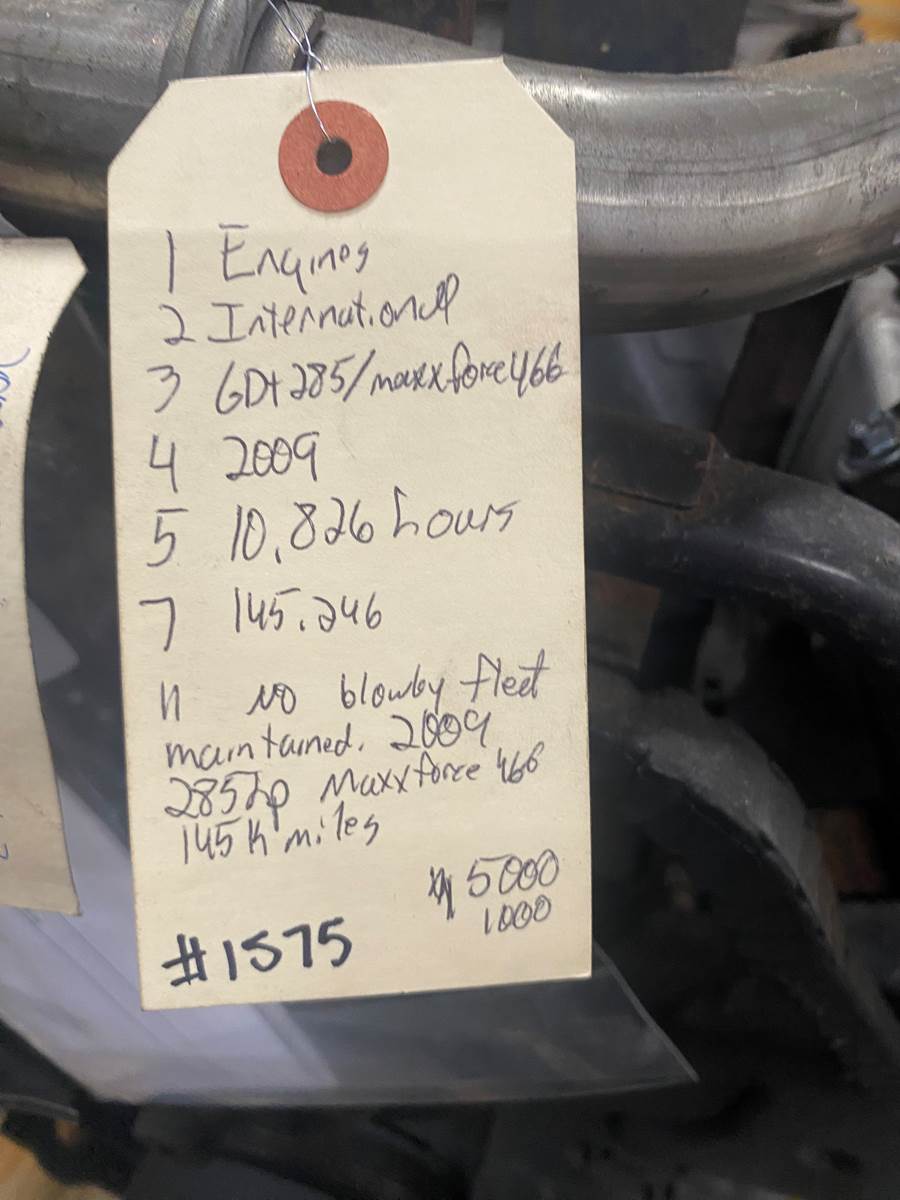 1 Engines
2 International
3 6Dt285/maxxforce466
4 2009
5 10,826 hours
7 145.246
11 NO blowby fleet
maintained. 2009
285hp Maxxforce 466
145K miles
5000
1000
#1575